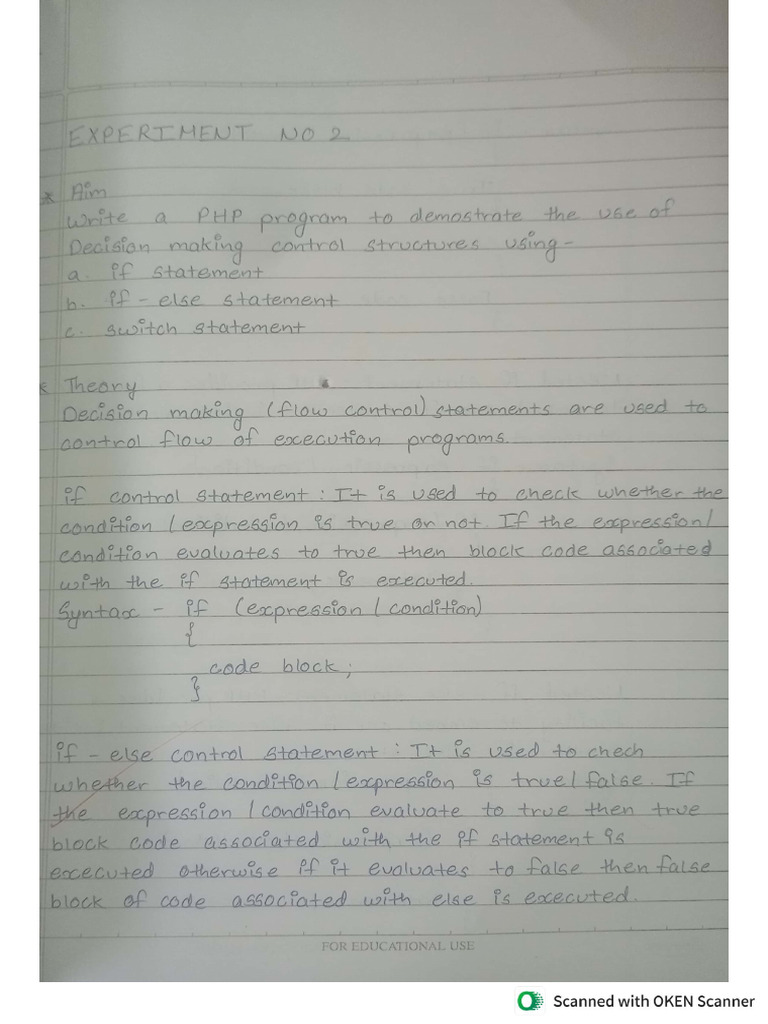 EXPERIMENT NO 2
* Aim
Write a PHP program to demostrate the use of
Decision making control structures using-
a. if statement
b. if - else statement
c. switch statement
* Theory
Decision making (flow control) statements are used to
control flow of execution programs.
if control statement : It is used to check whether the
condition / expression is true or not. If the expression/
condition evaluates to true then block code associated
with the if statement is executed.
Syntax - if (expression / condition)
{
code block;
}
if - else control statement : It is used to chech
whether the condition / expression is true/false. If
the expression / condition evaluate to true then true
block code associated with the if statement is
executed otherwise if it evaluates to false then false
block of code associated with else is executed.
FOR EDUCATIONAL USE
Scanned with OKEN Scanner